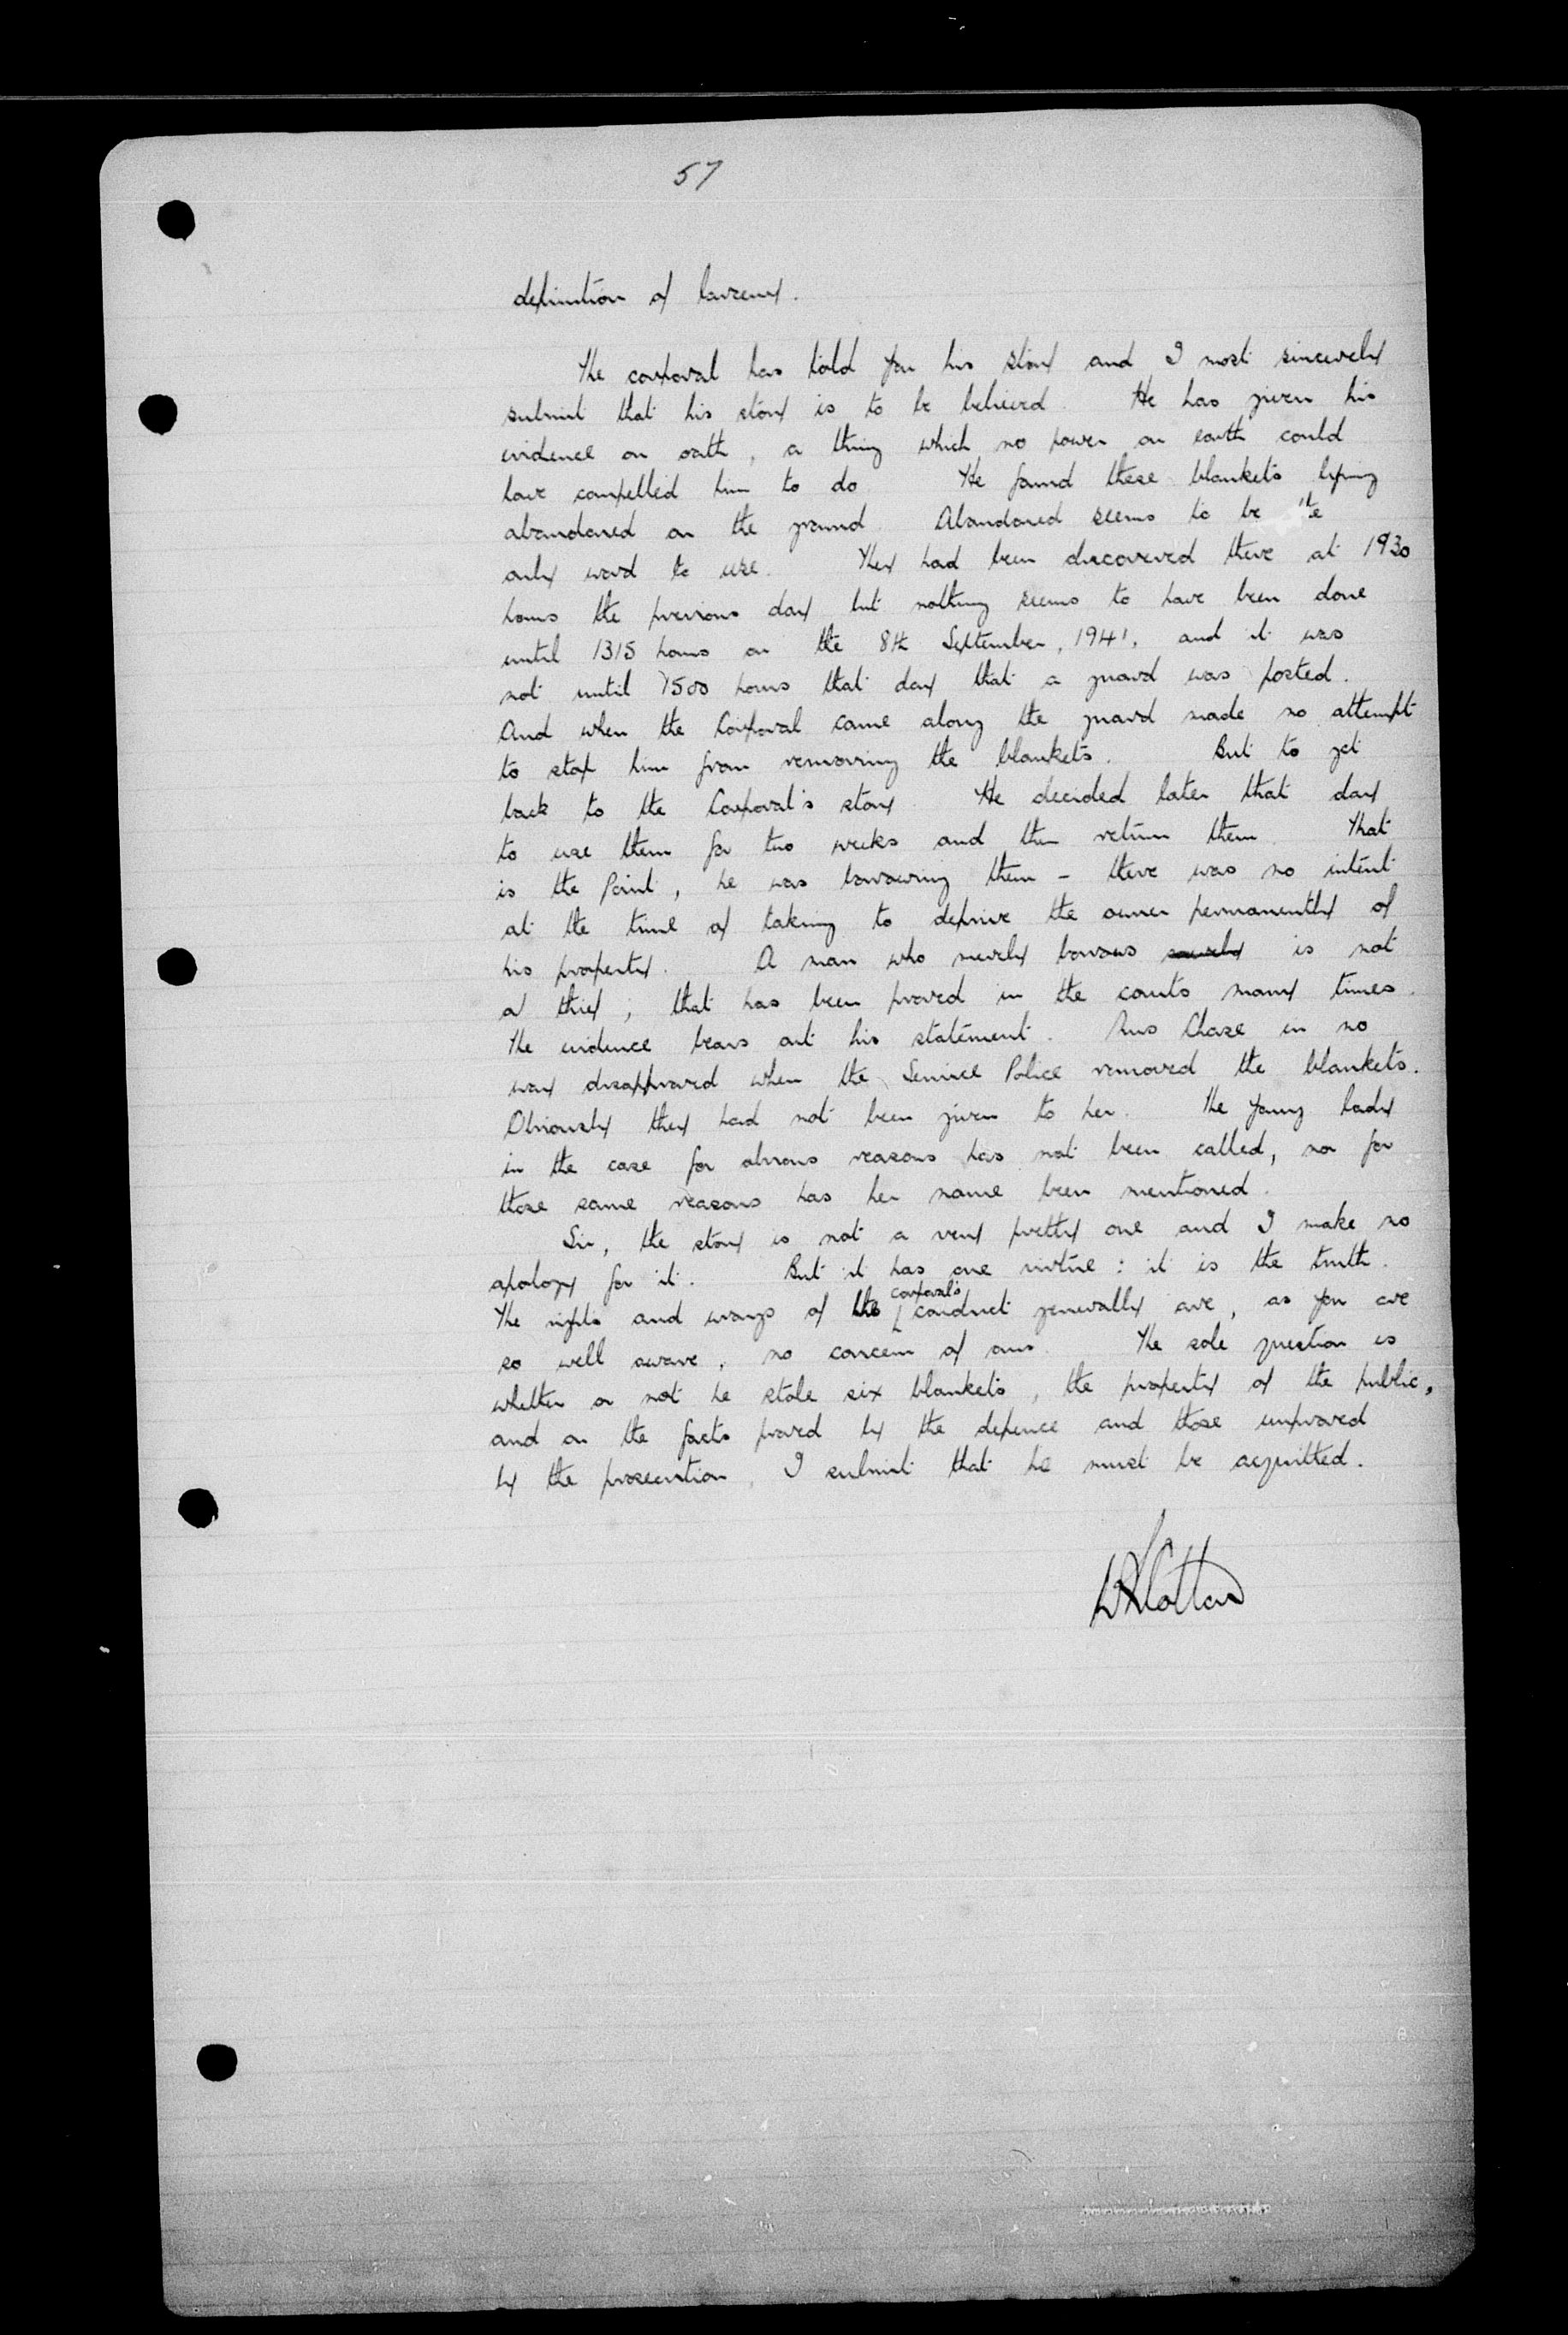 57
definition of larceny.
The corporal has told you his story and I most sincerely
submit that his story is to be believed. He has given his
evidence on oath, a thing which no power on earth could
have compelled him to do. He found these blankets lying
abandoned on the ground. Abandoned seems to be the
only word to use. They had been discovered there at 1930
hours the previous day but nothing seems to have been done
until 1315 hours on the 8th September, 1941, and it was
not until 1500 hours that day that a guard was posted.
And when the Corporal came along the guard made no attempt
to stop him from removing the blankets. But to get
back to the Corporal's story. He decided later that day
to use them for two weeks and then return them. That
is the Point, he was borrowing them - there was no intent
at the time of taking to deprive the owner permanently of
his property. A man who merely borrows is not
a thief; that has been proved in the courts many times.
The evidence bears out his statement. Chase in no
way disapproved when the Service Police removed the blankets.
Obviously they had not been given to her. The young lady
in the case for obvious reasons has not been called, nor for
those same reasons has her name been mentioned.
Sir, the story is not a very pretty one and I make no
apology for it. But it has one virtue: it is the truth.
The rights and wrongs of the corporal's conduct generally are, as you are
so well aware, no concern of ours. The sole question is
whether or not he stole six blankets, the property of the public,
and on the facts proved by the defence and those unproved
by the prosecution, I submit that he must be acquitted.